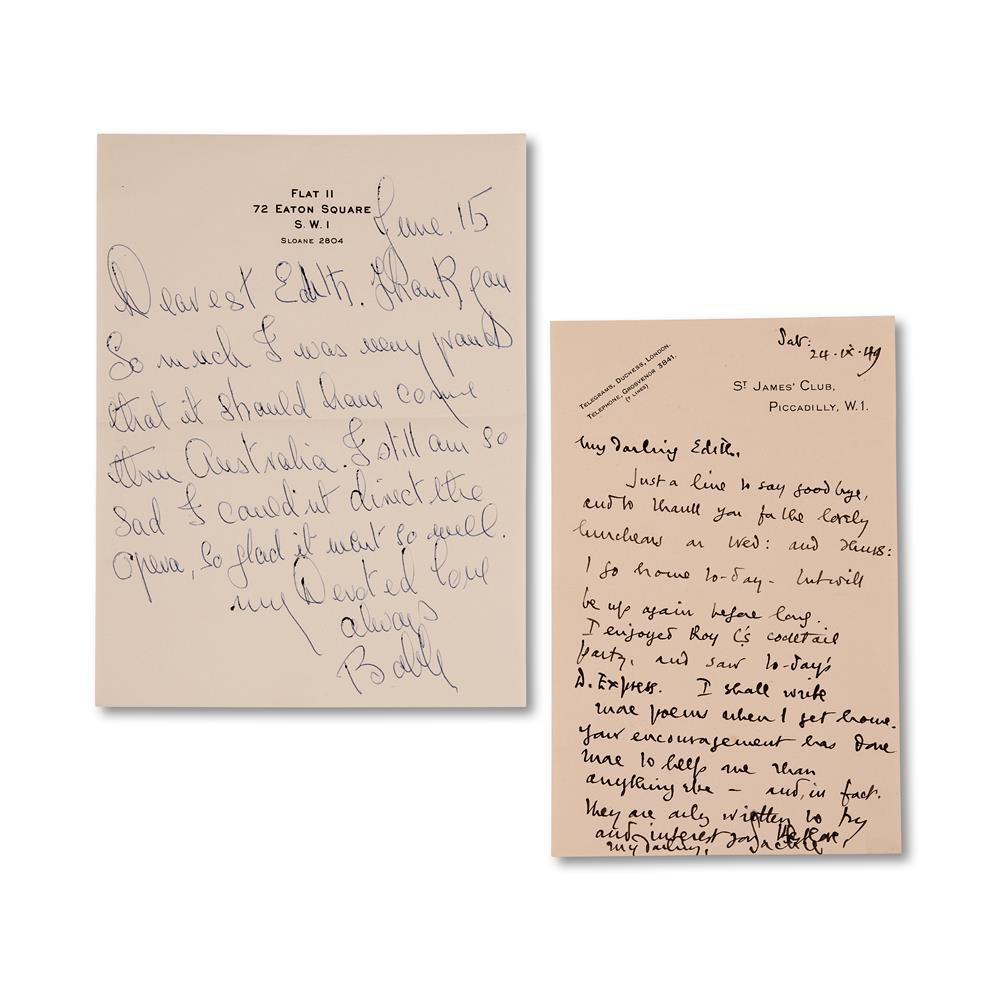 FLAT 11
72 EATON SQUARE
S. W. 1
SLOANE 2804
June. 15
Dearest Edith. Thank you
So much I was very proud
that it should have come
thru Australia. I still am so
sad I could'nt direct the
opera, So glad it went so well.
my Devoted love
always
Sat:
24·IX·49
TELEGRAMS, DUCHESS, LONDON.
TELEPHONE, GROSVENOR 3841.
(7 LINES)
ST JAMES' CLUB,
PICCADILLY, W.1.
My Darling Edith,
Just a line to say goodbye,
and to thank you for the lovely
luncheons on Wed: and Thurs:
I go home to-day – but will
be up again before long.
I enjoyed Roy C's cocktail
party, and saw to-day's
D. Express. I shall write
more poems when I get home.
Your encouragement has done
more to help me than
anything else – and, in fact.
they are only written to try
and interest you
my darling,